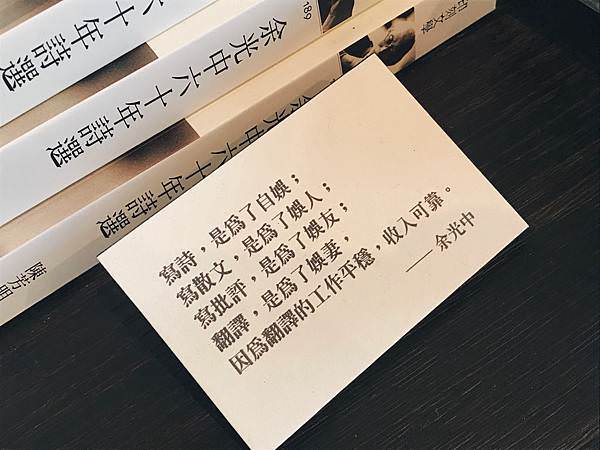 六十年詩選
余光中六十年詩選
189
印刻文學
余光中六十年詩選
陳芳明
寫詩，是爲了自娛；
寫散文，是爲了娛人；
寫批評，是爲了娛友；
翻譯，是爲了娛妻，
因爲翻譯的工作平穩，收入可靠。
——余光中